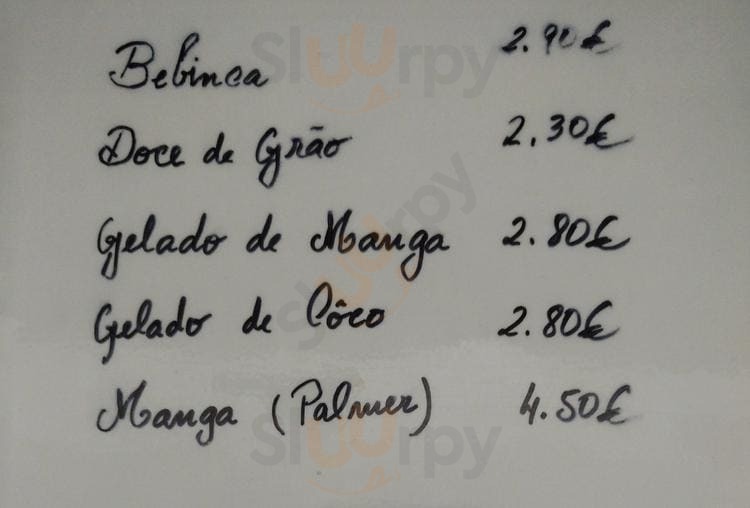 Bebinca 2.90€
Doce de Grão 2.30€
Gelado de Manga 2.80€
Gelado de Côco 2.80€
Manga (Palmer) 4.50€
Sluurpy
Sluurpy
Sluurpy